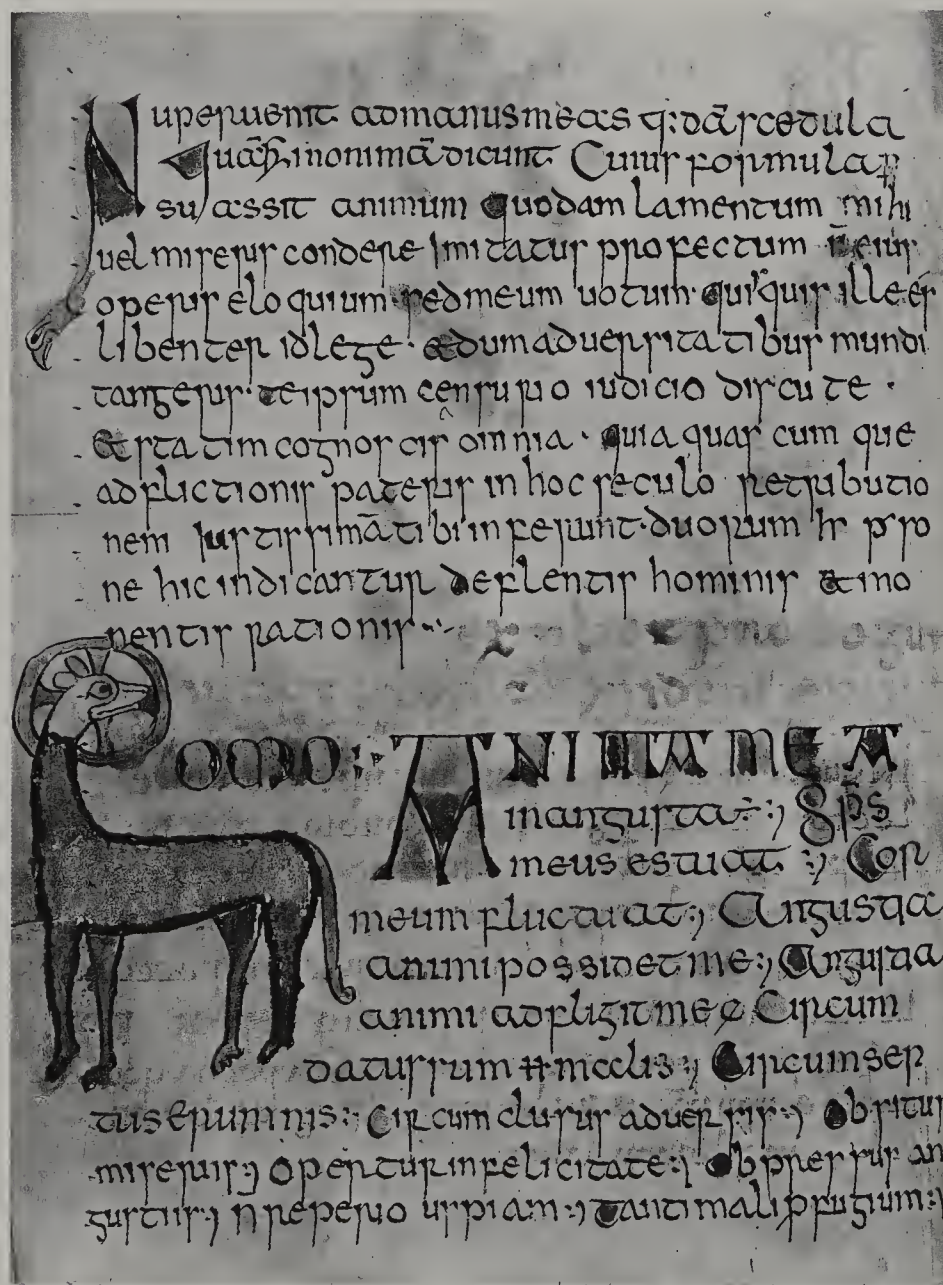 Nuper uenit ad manus meas q:dã scedula
quã sinonimã dicunt Cuius formula p
suassit animum quodam lamentum mihi
uel miseris condere Imitatus profectum ñ eius
operis eloquium sed meum uotum quisquis ille és
libenter id lege & dum aduersitatibus mundi
tangeris te ipsum censurio iudicio discute
& statim cognoscis omnia quia quas cum que
adflictionis pateris in hoc seculo retributio
nem Iustissimã tibi inferunt duorum hr pso
ne hic indicantur deflentis hominis & mo
nentis rationis
OMO: ANIMA MEA
in angusta ÷ Sps
meus estuat Cor
meum fluctuat Angustia
animi possidet me Angustia
animi adfligit me Circum
datus sum malis Circumsep
tus erumnis Circumclusus aduersis Obsitus
miseriis opertus infelicitate obpressus an
gustiis ñ reperio uspiam tanti mali pfugium